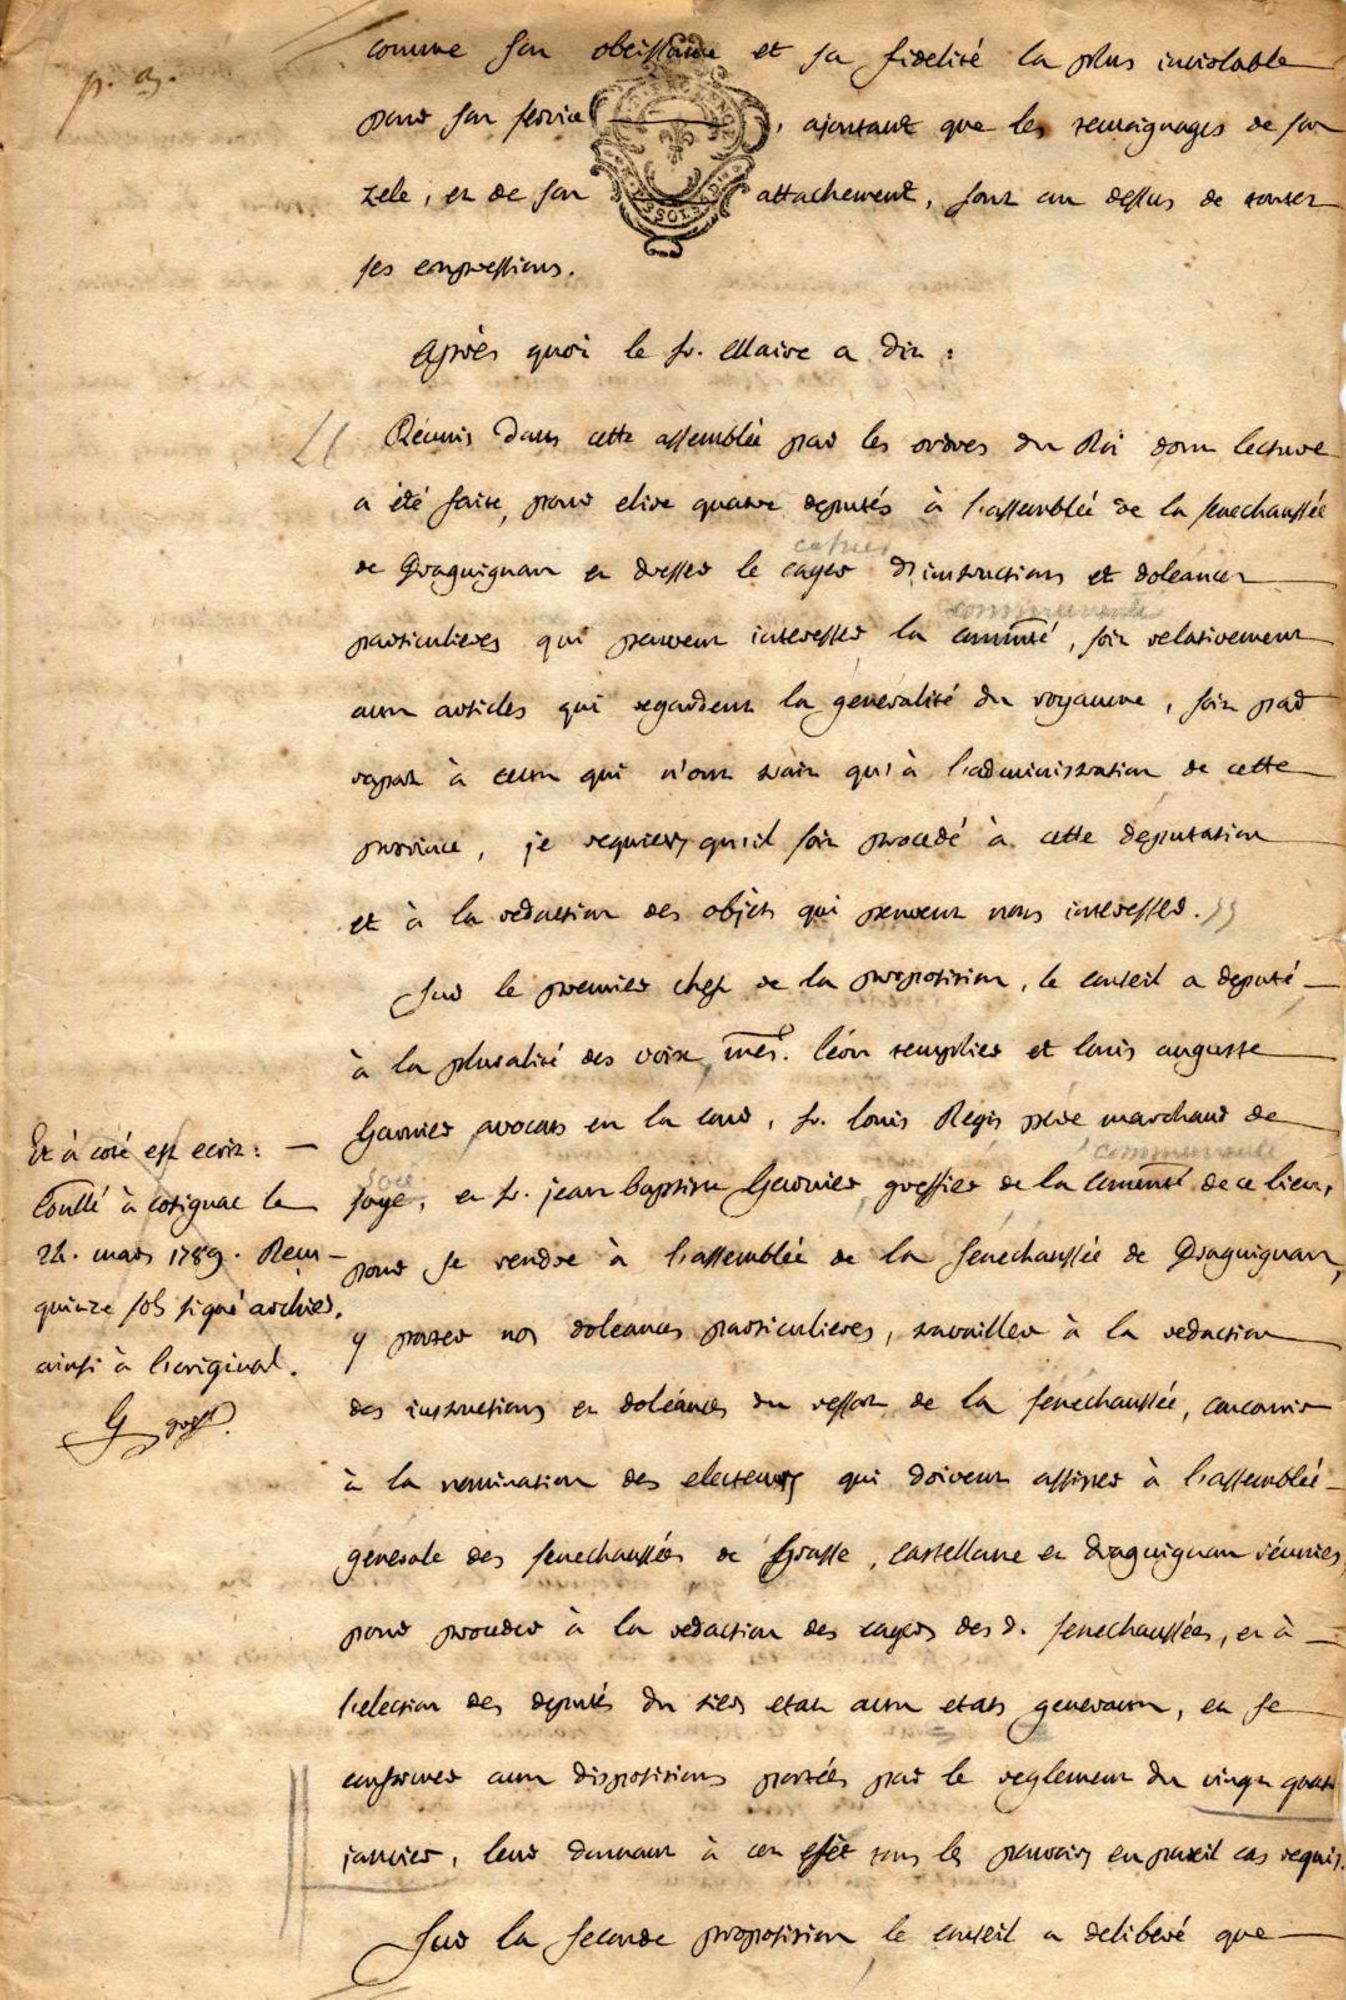 p. 3.
comme son obeissance et sa fidelité la plus inviolable
pour son service, ajoutant que les temoignages de son
zele, et de son attachement, sont au dessus de toutes
ses expressions.
Après quoi le sr. Maire a dit :
" Réunis dans cette assemblée par les ordres du Roi dont lecture
a été faite, pour elire quatre deputés à l'assemblée de la senechaussée
cahier
de Draguignan et dresser le cayer d'instructions et doleances
communauté
particulieres qui peuvent interesser la commté, soit relativement
aux articles qui regardent la généralité du royaume, soit par
raport à ceux qui n'ont trait qu'à l'administration de cette
province, je requiers qu'il soit procedé à cette deputation
et à la redaction des objets qui peuvent nous interesser. "
Sur le premier chef de la proposition, le conseil a deputé
à la pluralité des voix, mes. léon templier et louis auguste
Garnier avocats en la cour, sr. louis Regis père marchand de
soie communauté
soye, et sr. jean baptiste Garnier greffier de la commté de ce lieu,
pour se rendre à l'assemblée de la senéchaussée de Draguignan,
y porter nos doleances particulieres, travailler à la redaction
des instructions et doléances du ressort de la senechaussée, concourir
à la nomination des electeurs qui doivent assister à l'assemblée
générale des senechaussées de Grasse, castellane et draguignan réunies,
pour proceder à la redaction des cayers des d. senechaussées, et à
l'election des deputés du tiers etat aux etats generaux, et se
conformer aux dispositions portées par le reglement du vingt quatre
janvier, leur donnant à cet efet tous les pouvoirs en pareil cas requis.
Sur la seconde proposition le conseil a delibéré que
Et à coté est ecrit :
Conllé à cotignac le
24. mars 1789. Reçu
quinze sols signé archier.
ainsi à l'original.
G greff.